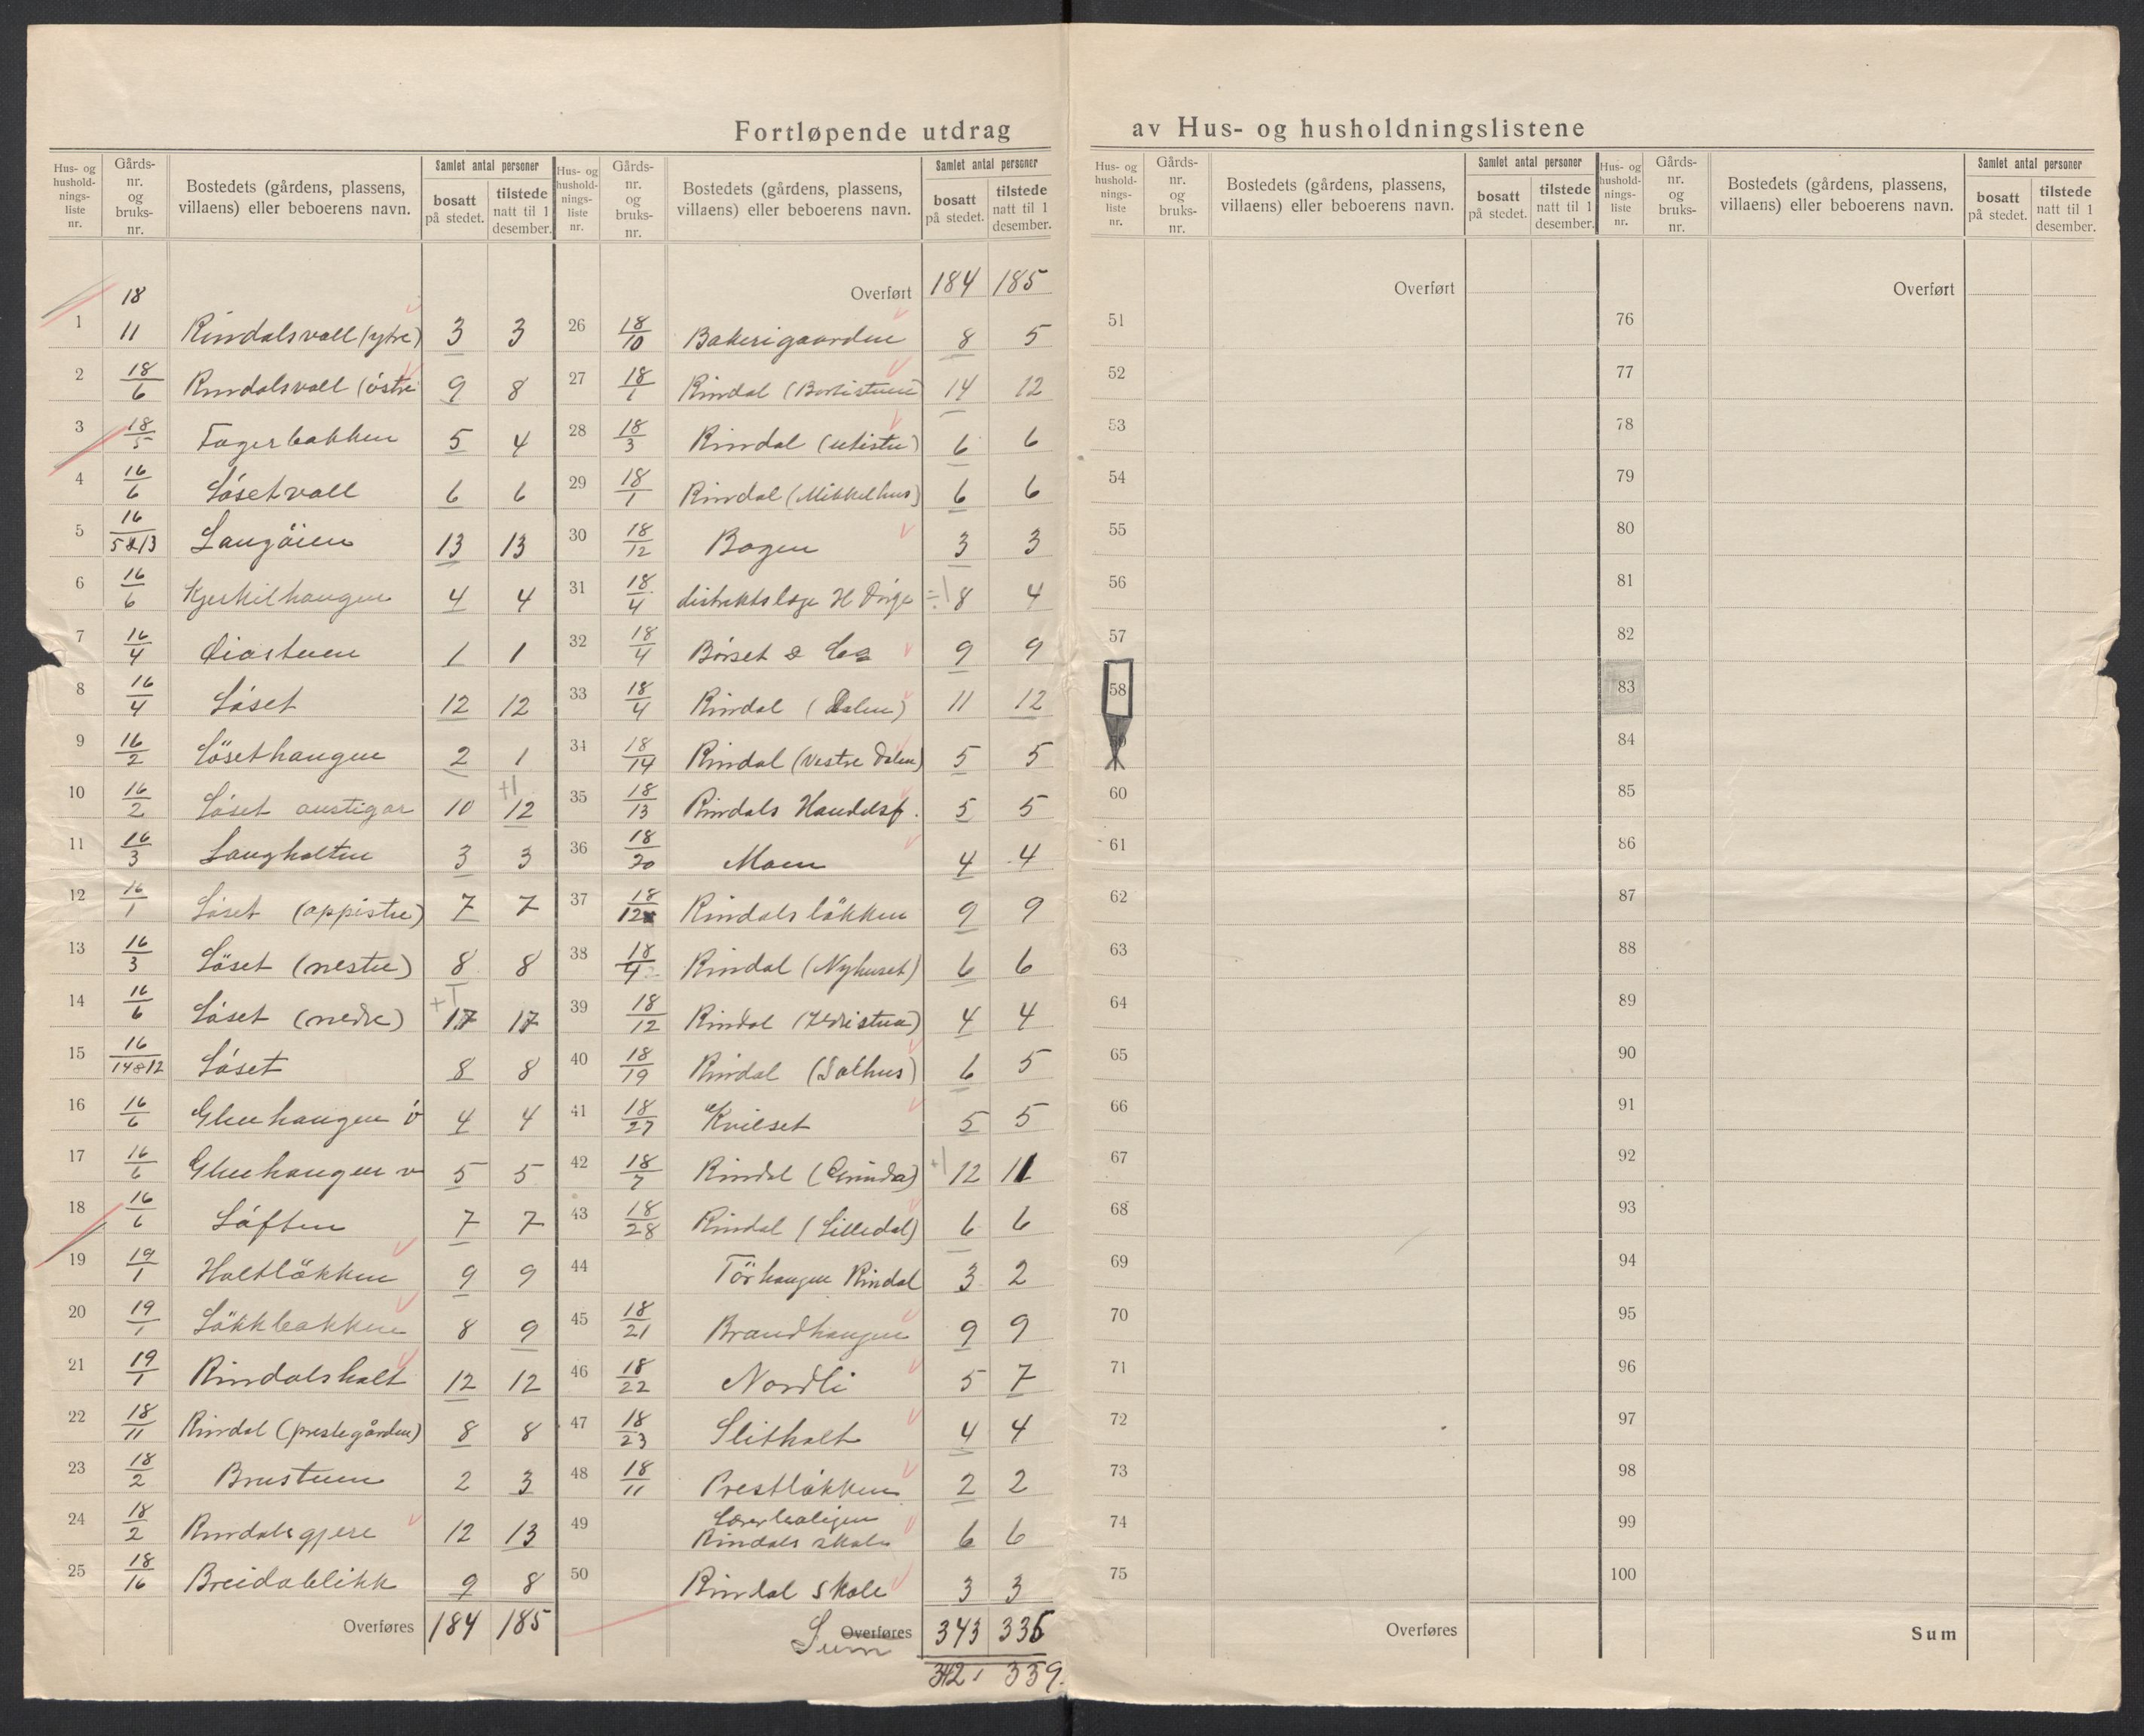 Fortløpende utdrag av Hus- og husholdningslistene
Hus- og husholdningsliste nr.
Gårdsnr. og bruksnr.
Bostedets (gårdens, plassens, villaens) eller beboerens navn.
Samlet antal personer
bosatt på stedet.
tilstede natt til 1 desember.
1 18 11 Rindalsvoll (ytre) 3 3
2 18/6 Rindalsvoll (östre 9 8
3 18/5 Fagerbakken 5 4
4 16/6 Löset voll 6 6
5 16/5&13 Langöien 13 13
6 16/6 Kjerkilhaugen 4 4
7 16/4 Öiastuen 1 1
8 16/4 Löset 12 12
9 16/2 Lösethaugen 2 1
10 16/2 Löset austigar 10 +1 12
11 16/3 Langholten 3 3
12 16/1 Löset (oppistu) 7 7
13 16/3 Löset (nestu) 8 8
14 16/6 Löset (nedre) +1 17 17
15 16/14&12 Löset 8 8
16 16/6 Glenhaugen ö 4 4
17 16/6 Glenhaugen v 5 5
18 16/6 Löften 7 7
19 19/1 Holtløkken 9 9
20 19/1 Løkkbakken 8 9
21 19/1 Rindalsholt 12 12
22 18/11 Rindal (prestegården) 8 8
23 18/2 Brustuen 2 3
24 18/2 Rindalsgjere 12 13
25 18/16 Breidablikk 9 8
Overføres 184 185
Hus- og husholdningsliste nr.
Gårdsnr. og bruksnr.
Bostedets (gårdens, plassens, villaens) eller beboerens navn.
Samlet antal personer
bosatt på stedet.
tilstede natt til 1 desember.
Overført 184 185
26 18/10 Bakerigaarden 8 5
27 18/1 Rindal (Bortistuen) 14 12
28 18/3 Rindal (utistu) 6 6
29 18/1 Rindal (Mikkelhus) 6 6
30 18/12 Bogen 3 3
31 18/4 distriktslege H ÷1 8 4
32 18/4 Börset & Co 9 9
33 18/4 Rindal (Dalen) 11 12
34 18/14 Rindal (Vestre Dalen) 5 5
35 18/13 Rindals Handelsf. 5 5
36 18/20 Moen 4 4
37 18/12 Rindalsløkken 9 9
38 18/4 Rindal (Nyhuset) 6 6
39 18/12 Rindal 4 4
40 18/19 Rindal (Solhus) 6 5
41 18/27 Kvilset 5 5
42 18/7 Rindal (Grinda) +1 12 11
43 18/28 Rindal (Lilledal) 6 6
44 Törhaugen Rindal 3 2
45 18/21 Brandhaugen 9 9
46 18/22 Nordli 5 7
47 18/23 Slitholt 4 4
48 18/11 Prestløkken 2 2
49 Lærerboligen
Rindals skole 6 6
50 Rindal skole 3 3
Overføres Sum 343 336
342 339
Hus- og husholdningsliste nr.
Gårdsnr. og bruksnr.
Bostedets (gårdens, plassens, villaens) eller beboerens navn.
Samlet antal personer
bosatt på stedet.
tilstede natt til 1 desember.
Overført
51
52
53
54
55
56
57
58
60
61
62
63
64
65
66
67
68
69
70
71
72
73
74
75
Overføres
Hus- og husholdningsliste nr.
Gårdsnr. og bruksnr.
Bostedets (gårdens, plassens, villaens) eller beboerens navn.
Samlet antal personer
bosatt på stedet.
tilstede natt til 1 desember.
Overført
76
77
78
79
80
81
82
83
84
85
86
87
88
89
90
91
92
93
94
95
96
97
98
99
100
Sum